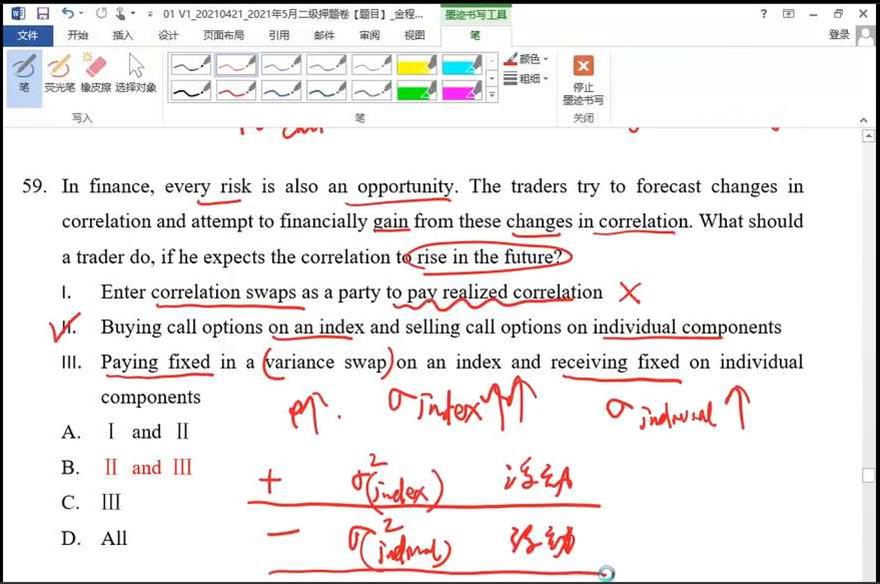 01 V1_20210421_2021年5月二级押题卷【题目】_金程...
墨迹书写工具
文件 开始 插入 设计 页面布局 引用 邮件 审阅 视图 笔 登录
笔 荧光笔 橡皮擦 选择对象 颜色 粗细 停止 墨迹书写
写入 笔 关闭
59. In finance, every risk is also an opportunity. The traders try to forecast changes in
correlation and attempt to financially gain from these changes in correlation. What should
a trader do, if he expects the correlation to rise in the future?
I. Enter correlation swaps as a party to pay realized correlation
II. Buying call options on an index and selling call options on individual components
III. Paying fixed in a variance swap on an index and receiving fixed on individual
components
ρ↑. σ index↑↑ σ individual ↑
A. Ⅰ and Ⅱ
B. Ⅱ and Ⅲ
+ σ²(index) 浮动
C. Ⅲ
D. All
− σ²(individual) 浮动